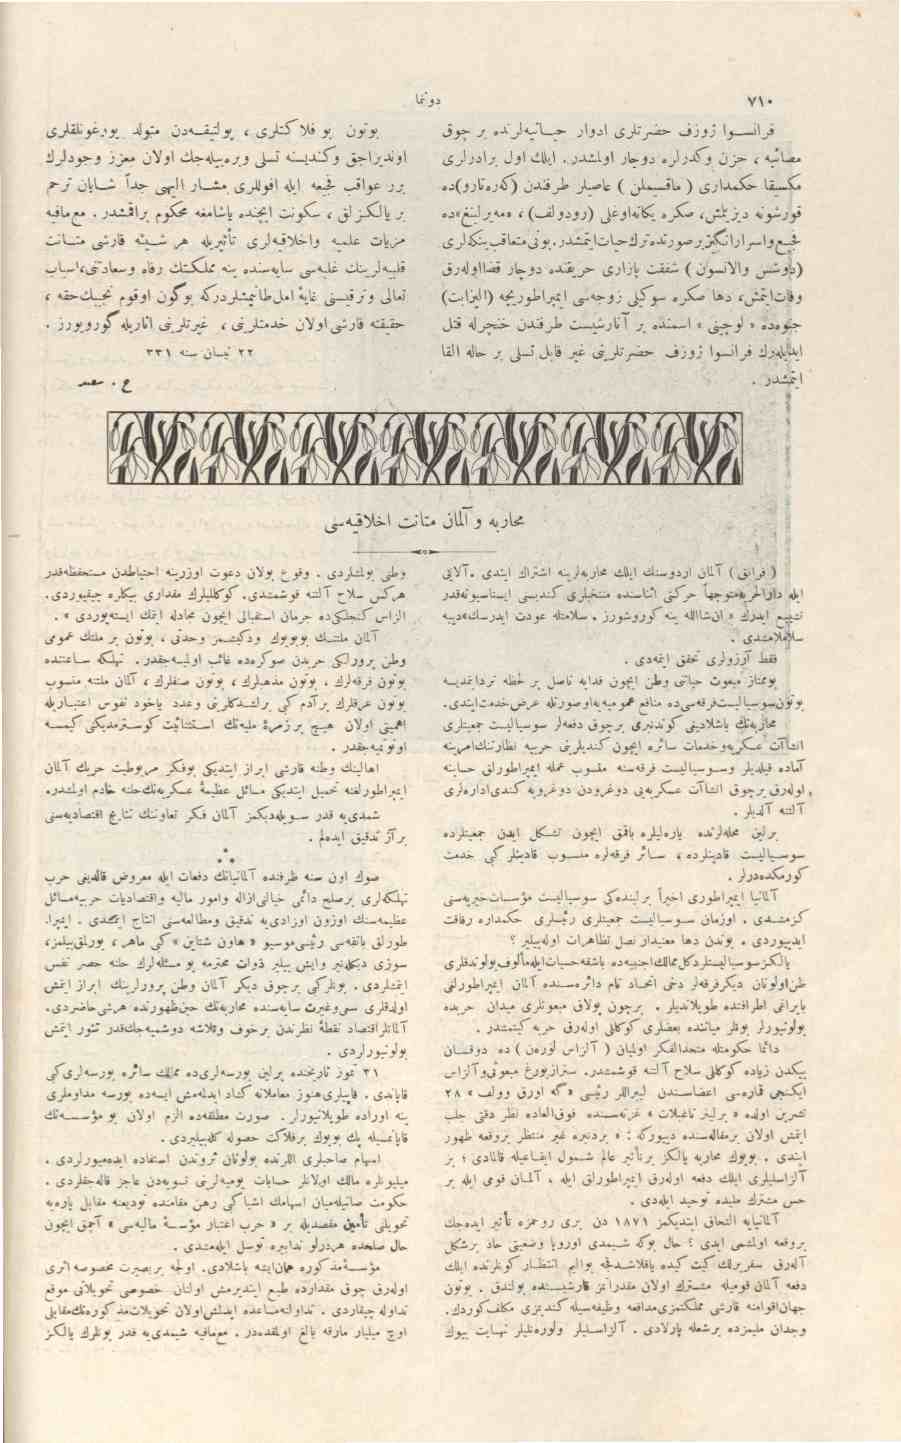 ٧١٠
دونما
فرانسوا ژوزف حضرتلری ادوار حیاتیه‌لرنده بر چوق
مصائبه ، حزن وکدرلره دوچار اولمشدر. ایلك اول برادرلری
مکسیقا حکمداری ( ماقسیملن ) عاصیلر طرفندن (که‌ره‌تارو)ده
قورشونه دیزیلمش، صکره یکانه‌اوغلی (رودولف) ، «مه‌یرلینغ»ده
فجیع‌واسرارانگیز برصورتده‌ترك‌حیات‌ایتمشدر. بونی‌متعاقب‌ینکه‌لری
(داوشس والانسون ) شفقت بازاری حریقنده دوچار قضااوله‌رق
وفات‌ایتمش، دها صکره سوکیلی زوجه‌سی ایمپراطوریچه (الیزابت)
جنوه‌ده « لوچینی » اسمنده بر آنارشیست طرفندن خنجرله قتل
ایدیله‌رك فرانسوا ژوزف حضرتلرینی غیر قابل تسلی بر حاله القا
ایتمشدر .
بوتون بو فلاکتلری ، پولتیقه‌دن متولد یورغونلقلری
اوندیراجق وکندیسنه تسلی ویره‌بیله‌جك اولان معزز وجودلرك
برر عواقب فجیعه ایله افوللری مشار الیهی جداً شایان ترحم
بر یالکزلق ، سکونت ایچنده یاشامغه محکوم براقمشدر . مع‌مافیه
مزیات علمیه واخلاقیه‌لری تأثیریله هر شیئه قارشی متانت
قلبیه‌لرینك غلبه‌سی سایه‌سنده ینه مملکتك رفاه وسعادتنی،اسباب
تعالی وترقیسنی غایهٔ امل‌طانیمشلردرکه بوکون اوقوم نجیبك‌حقه ،
حقیقته قارشی‌اولان خدمتلرینی ، غیرتلرینی آثاریله‌گورویورز .
٢٢ نیسان سنه ٣٣١
ع . سعید
محاربه و آلمان متانت اخلاقیه‌سی
( فرانق ) آلمان اردوسنك ایلك محاربه‌لرینه اشتراك ایتدی . آلایی
ایله دارالحربه‌متوجهاً حرکتی اثناسنده منتخبلری کندیسنی ایستاسیونه‌قدر
تشییع ایدرك « ان‌شاالله ینه کوروشورز . سلامتله عودت ایدرسك»دییه
سلاملامشدی .
فقط آرزولری تحقق ایتمه‌دی .
بوممتاز مبعوث حیاتی وطن ایچون فدایه ناصل بر لحظه ترددایتمدیسه
بوتون‌سوسیالیست‌فرقه‌سی‌ده منافع عمومیه‌یه‌اوصورتله عرض‌خدمت‌ایتدی.
محاربه‌نك باشلادیغی کوندنبری برچوق دفعه‌لر سوسیالیست جمعیتلری
انشاآت عسکریه‌وخدمات سائره ایچون کندیلرینی حربیه نظارتنك‌امرینه
آماده قیلدیلر وسوسیالیست فرقه‌سنه منسوب عمله ایمپراطورلق حسابنه
اوله‌رق‌برچوق انشاآت عسکریه‌یی دوغرودن دوغرویه کندی‌اداره‌لری
آلتنه آلدیلر .
برلین محله‌لرنده یاره‌لیلره باقمق ایچون تشکل ایدن جمعیتلرده
سوسیالیست قادینلرده ، سائر فرقه‌لره منسوب قادینلر کبی خدمت
کورمکده‌درلر .
آلمانیا ایمپراطوری اخیراً برلینده‌کی سوسیالیست مؤسسات‌خیریه‌سنی
کزمشدی . اوزمان سوسیالیست جمعیتلری رئیسلری حکمداره رفاقت
ایدییوردی . بوندن دها معنیدار نصل تظاهرات اوله‌بیلیر ؟
یالکزسوسیالیستلردکل‌ممالك‌اجنبیه‌ده باشقه‌حسیات‌ایله‌مألوف‌بولوندقلری
ظن‌اولونان دیکرفرقه‌لر دخی اتحاد تام دائره‌سنده آلمان ایمپراطورلغی
بایراغی اطرافنده طوپلاندیلر . برچوق پولاق مبعوثلری میدان حربده
بولونیورلر بونلر میاننده بعضلری کوکللی اوله‌رق حربه کیتمشدر .
دائما حکومتله متحدالفکر اولمیان ( آلزاس لوره‌ن ) ده دوقسان
بیکدن زیاده کوکللی سلاح آلتنه قوشمشدر. ستراز‌بورغ مبعوثی‌وآلزاس
ایکنجی قماره‌سی اعضاسندن لیبراللر رئیسی « گه اورق وولف » ٢٨
تشرین اولده « برلینر تاغبلات » غزته‌سنده فوق‌العاده نظر دقتی جلب
ایتمش اولان برمقاله‌سنده دییورکه : « بردنبره غیر منتظر بروقعه ظهور
ایتدی . بویوك محاربه یالکز برتأثیر عالم شمول ایقاعیله قالمادی ؛ بز
آلزاسلیلری ایلك دفعه اوله‌رق ایمپراطورلق ایله ، آلمان قومی ایله بر
حس مشترك ملیده توحید ایله‌دی .
آلمانیایه التحاق ایتدیکمز ١٨٧١ دن بری روحمزه تأثیر ایده‌جك
بروقعه اولمشمی ایدی ؟ حال بوکه شیمدی اوروپا وضعیتی حاد برشکل
آله‌رق سفربرلك کیت کیده یاقلاشدقجه بوالیم انتظار کونلرنده ایلك
دفعه آلمان قومیله مشترك اولان مقدراتمز قارشیسنده بولندق . بوتون
جهان‌اقوامنه قارشی مملکتمزی‌مدافعه وظیفه‌سیله کندیمزی مکلف‌کوردك.
وجدان ملیمزده برشعله پارلادی . آلزاسلیلر ولوره‌نلیلر نهایت بیوك
وطنی بولمشلردی . وقوع بولان دعوت اوزرینه احتیاطدن مستحفظه‌قدر
هرکس سلاح آلتنه قوشمشدی. کوکللیلرك مقداری بیکلره چیقیوردی.
الزاس کنجلکی‌ده جرمان استقبالی ایچون مجادله ایتمك ایسته‌یوردی » .
آلمان ملتنك بوبویوك ودکیشمز وحدتی ، بوتون بر ملتك عمومی
وطن پرورلکی حربدن صوکره‌ده غائب اولمیه‌جقدر. تهلکه ساعتنده
بوتون فرقه‌لرك . بوتون مذهبلرك ، بوتون صنفلرك ، آلمان ملتنه منسوب
بوتون عرقلرك برآدم کبی برلشدکلرینی وعدد یاخود نفوس اعتباریله
اهمیتی اولان هیچ برزمرهٔ ملیه‌نك استثنائیت کوسترمدیکنی کیمسه
اونوتمیه‌جقدر .
اهالینك وطنه قارشی ابراز ایتدیکی بوفکر مربوطیت حربك آلمان
ایمپراطورلغنه تحمیل ایتدیکی مسائل عظیمهٔ عسکریه‌نك‌حلنه خادم اولمشدر.
شمدی‌یه قدر سویله‌دیکمز آلمان فکر تعاوننك نتایج اقتصادیه‌سنی
برآز تدقیق ایده‌لم .
* * *
صوك اون سنه ظرفنده آلمانیانك دفعات ایله معروض قالدیغی حرب
تهلکه‌لری برصلح دائمی خیالنی‌ازاله وامور مالیه واقتصادیات حربیه‌مسائل
عظیمه‌سنك اوزون اوزادی‌یه تدقیق ومطالعه‌سنی انتاج ایتمشدی . ایمپرا.
طورلق بانقه‌سی رئیسی‌موسیو « هاون شتاین » کبی ماهر ، یورلق‌بیلمز،
سوزی دیکله‌نیر وایش بیلیر ذوات محترمه بو مسئله‌لرك حلنه حصر نفس
ایتمشلردی . بونلرکبی برچوق دیکر آلمان وطن پرورلرینك ابراز ایتمش
اولدقلری سعی‌وغیرت سایه‌سنده محاربه‌نك حین‌ظهورنده هرشی‌حاضردی.
آلمانلراقتصاد نقطهٔ نظرندن برخوف وتلاشه دوشمیه‌جك‌قدر تنور ایتمش
بولونیورلردی .
٣١ تموز تاریخنده برلین بورسه‌لری‌ده ممالك سائره بورسه‌لری‌کبی
قاپاندی . قاپیلری‌هنوز معاملاته کشاد ایدلمه‌مش ایسه‌ده بورسه مداوملری
ینه اوراده طوپلانیورلر . صورت مطلقه‌ده الزم اولان بو مؤسسه‌نك
قاپانمسیله پك بویوك برفلاکت حصوله کله‌بیلیردی .
اسهام صاحبلری اللرنده بولونان ثروتدن استفاده ایده‌میورلردی .
میلیونلره مالك اولانلر حسابات یومیه‌لرینی تسویه‌دن عاجز قاله‌جقلردی .
حکومت صاتیله‌میان اسهامك اشیا کبی رهن مقامنده تودیعنه مقابل پاره‌یه
تحویلنی تأمین مقصدیله بر « حرب اعتبار مؤسسهٔ مالیه‌سی » آچمق ایچون
حال صلحده هردرلو تدابیره توسل ایله‌مشدی .
مؤسسهٔ‌مذکوره همان‌ایشه باشلادی. اولجه بربصیرت مخصوصه اثری
اوله‌رق چوق مقدارده طبع ایتدیرمش اولنان خصوصی تحویلاتی موقع
تداوله چیقاردی . تداولنه‌مساعده ایدلمش‌اولان تحویلات‌مذکوره‌نك‌مقابلی
اوچ میلیار مارقه بالغ اولمقده‌در . مع‌مافیه شیمدی‌یه قدر بونلرك یالکز